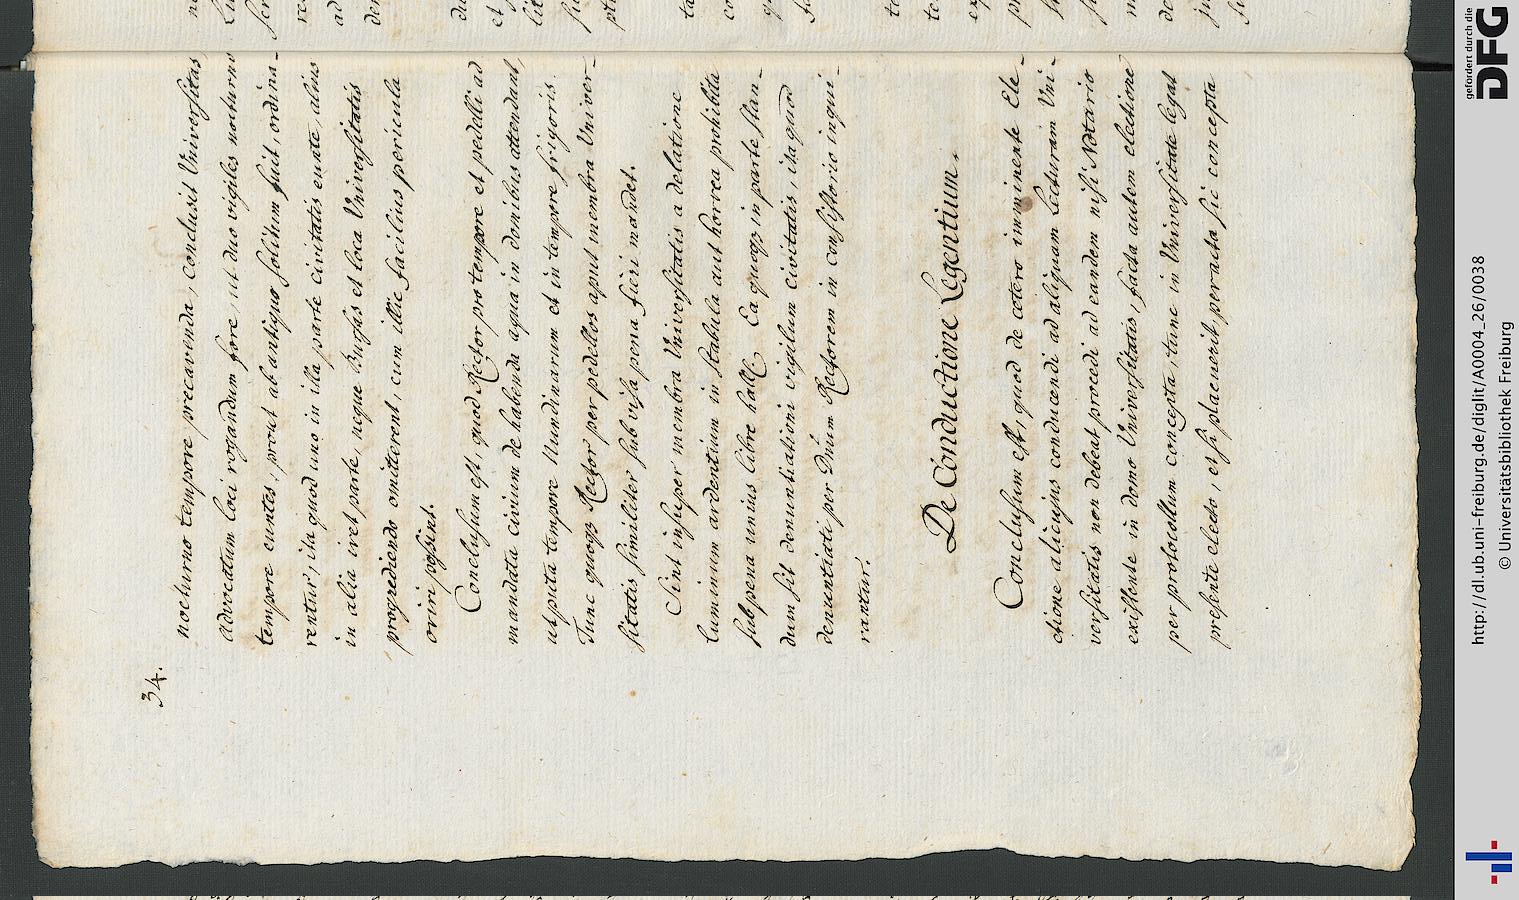 34.
nocturno tempore precavenda, conclusit Universitas
advocatum loci rogandum fore, ut duo vigiles nocturno
tempore euntes, prout ab antiquo solitum fuit, ordina-
rentur, ita quod uno in illa parte civitatis eunte, alius
in alia iret parte, neque Bursas et loca Universitatis
progrediendo omitterent, cum illic facilius pericula
oriri possint.
Conclusum est, quod Rector pro tempore et pedelli ad
mandata civium de habenda aqua in domibus attendant,
utputa tempore Nundinarum et in tempore frigoris.
Tunc quoqz Rector per pedellos aput membra Univer-
sitatis similiter sub visa pena fieri mandet.
Sint insuper membra Universitatis a delatione
luminum ardentium in stabula aut horrea prohibita
sub pena unius libre Ea quoqz in parte stan-
dum sit denuntiationi vigilum civitatis, ita quod
denuntiati per Dnum Rectorem in consistorio inqui-
rantur.
De Conductione Legentium.
Conclusum est, quod de cetero imminente Ele-
ctione alicujus conducendi ad aliquam Lecturam Uni-
versitatis non debeat procedi ad eandem nisi Notario
existente in domo Universitatis, facta autem electione
per protocollum concepta, tunc in Universitate legat
presente electo, et si placuerit, peracta sic concepta
gefördert durch die
DFG
http://dl.ub.uni-freiburg.de/diglit/A0004_26/0038
© Universitätsbibliothek Freiburg